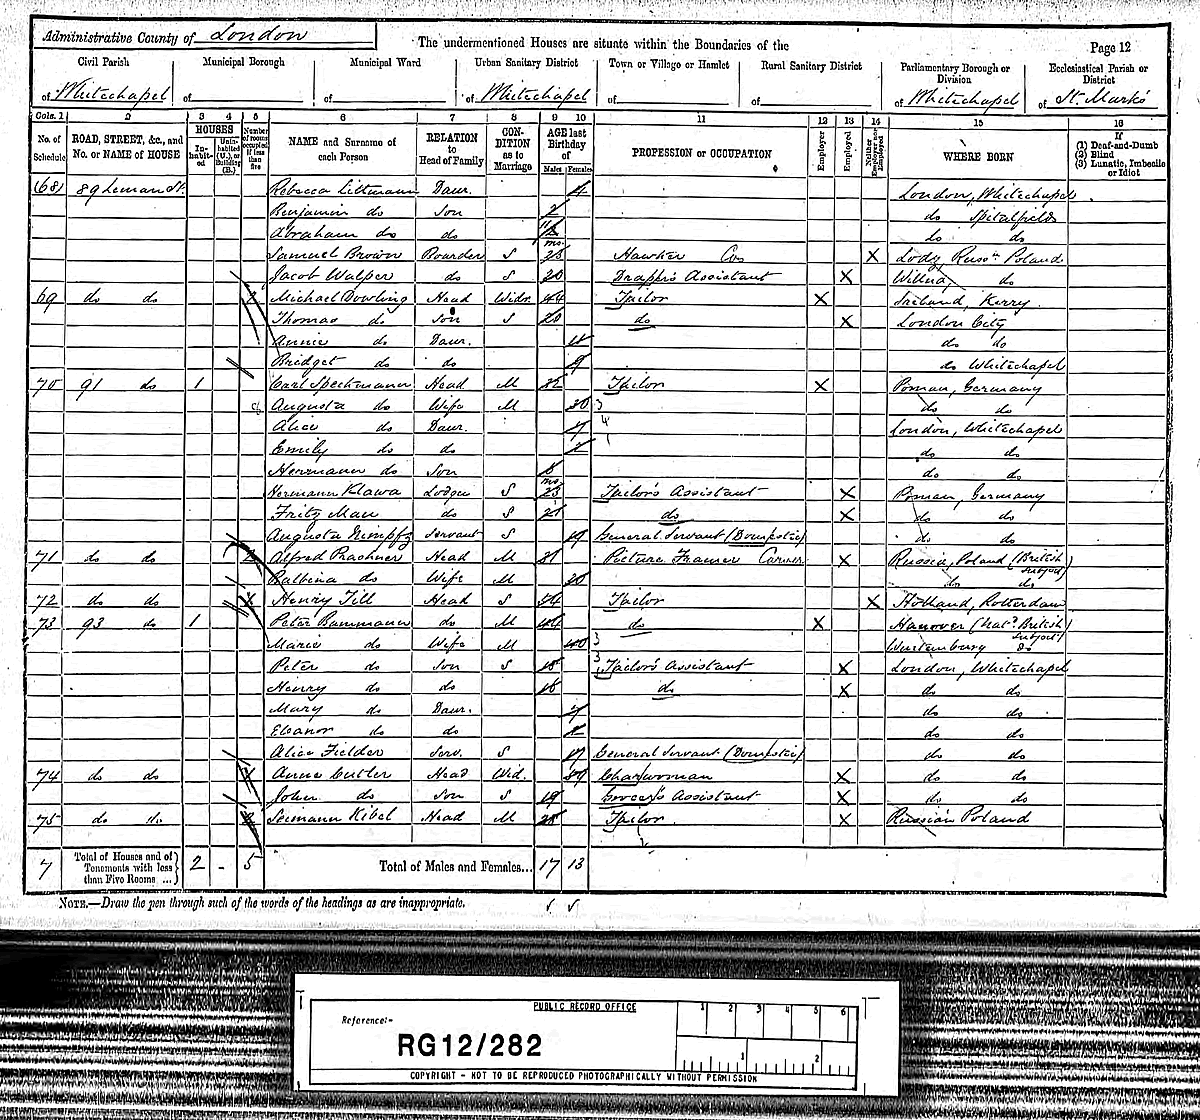 Administrative County of London
The undermentioned Houses are situate within the Boundaries of the
Page 12
Civil Parish Municipal Borough Municipal Ward Urban Sanitary District Town or Village or Hamlet Rural Sanitary District Parliamentary Borough or Division Ecclesiastical Parish or District
of Whitechapel of of of Whitechapel of of of Whitechapel of St. Mark's
Cols. 1 2 3 4 5 6 7 8 9 10 11 12 13 14 15 16
No. of Schedule ROAD, STREET, &c., and No. or NAME of HOUSE HOUSES Inhabited Uninhabited (U.), or Building (B.) Number of rooms occupied if less than five NAME and Surname of each Person RELATION to Head of Family CONDITION as to Marriage AGE last Birthday of Males Females PROFESSION or OCCUPATION Employer Employed Neither Employer nor Employed WHERE BORN If (1) Deaf-and-Dumb (2) Blind (3) Lunatic, Imbecile or Idiot
68 89 Leman St. Rebecca Littmann Daur. 4 London, Whitechapel
Benjamin do Son 2 do Spitalfields
Abraham do do mo. do do
Samuel Brown Boarder S Hawker X Lody Russn Poland
Jacob Walper do S 20 Draper's Assistant X Wilna do
69 do do Michael Dowling Head Widr. 44 Tailor X Ireland, Kerry
Thomas do Son S 20 do X London City
Annie do Daur. do do
Bridget do do 9 do Whitechapel
70 91 do 1 Carl Speckmann Head M 32 Tailor X German, Germany
Augusta do Wife M 30 do do
Alice do Daur. London, Whitechapel
Emily do do do do
Herrmann do Son mo. do do
Hermann Klawa Lodger S 23 Tailor's Assistant X Germany
Fritz Mau do S 21 do X do do
Augusta Servant S 19 General Servant (Domestic) do do
71 do do 2 Alfred Head M 31 Picture Framer Carver X Russia, Poland (British Subject)
Balbina do Wife M 30 do do
72 do do Henry Till Head S 34 Tailor X Holland, Rotterdam
73 93 do 1 Peter Bammann do M 44 do X Hanover (Natd. British Subject)
Marie do Wife M 40 do
Peter do Son S 18 Tailor's Assistant X London, Whitechapel
Henry do do 16 do X do do
Mary do Daur. 7 do do
Eleanor do do do do
Alice Fielder Serv. S 17 General Servant (Domestic) do do
74 do do Annie Cutler Head Wid. 59 Charwoman X do do
John do Son S 19 Grocer's Assistant X do do
75 do do Seemann Kibel Head M Tailor X Russian Poland
7 Total of Houses and of Tenements with less than Five Rooms ... 2 - 5 Total of Males and Females... 17 13
NOTE.—Draw the pen through such of the words of the headings as are inappropriate.
PUBLIC RECORD OFFICE
1 2 3 4 5 6
Reference:-
RG12/282
1 2
COPYRIGHT - NOT TO BE REPRODUCED PHOTOGRAPHICALLY WITHOUT PERMISSION